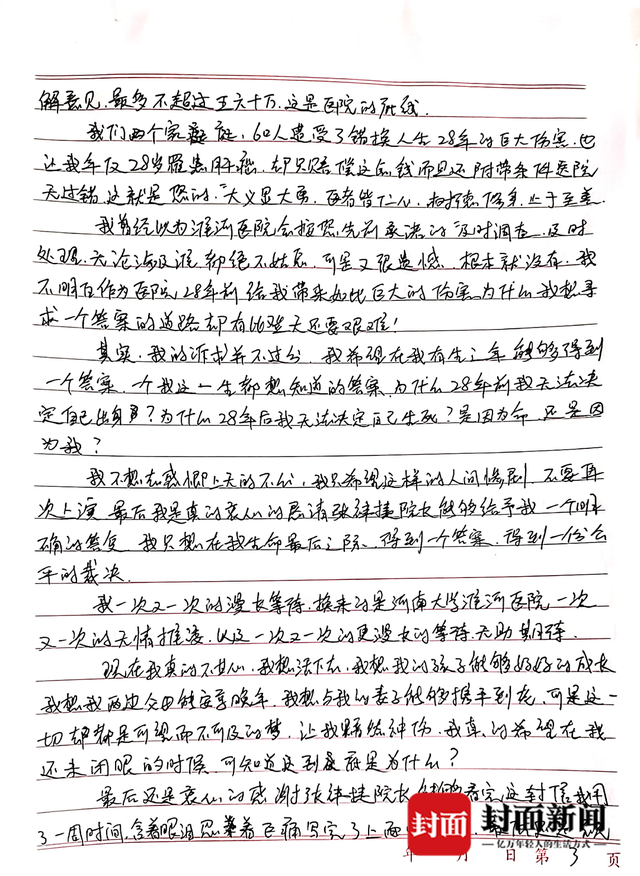 解意见，最多不超过五六十万，这是医院的底线。
我们两个家庭，60人遭受了错换人生28年的巨大伤害，也
让我年仅28岁罹患肝癌，却只赔偿这点钱而且还附带条件医院
无过错，这就是您的"大义显大勇，医者皆仁心，相德修身，止于至善
我曾经以为淮河医院会按您先前承诺的"及时调查，及时
处理，无论涉及谁都绝不姑息，可是又很遗憾，根本就没有，我
不明白作为医院28年前给我带来如此巨大的伤害，为什么我想寻
求一个答案的道路却有比登天还要艰难！
其实，我的诉求并不过分，我希望在我有生之年能够得到
一个答案，一个我这一生都想知道的答案，为什么28年前我无法决
定自己出身？为什么28年后我无法决定自己生死？是因为命，还是因
为我？
我不想去感慨上天的不公，我只希望这样的人间惨剧，不要再
次上演，最后我是真的衷心的恳请张祎捷院长能够给予我一个明
确的答复，我只想在我生命最后之际，得到一个答案，得到一份公
平的裁决。
我一次又一次的漫长等待，换来的是河南大学淮河医院一次
又一次的无情推凌，以及一次又一次的更漫长的等待，无助，期待
现在我真的不甘心，我想活下去，我想我的孩子能够好好的成长
我想我两边父母能安享晚年，我想与我的妻子能够携手到老，可是这一
切却都是可望而不可及的梦，让我黯然神伤，我真的希望在我
还未闭眼的时候，可知道这到底是为什么？
最后还是衷心的感谢张祎捷院长能够看完这封信，我用
了一周时间，含着眼泪忍着巨痛写完了上面
年 月 日 第 3 页
封面
封面新闻
亿万年轻人的生活方式